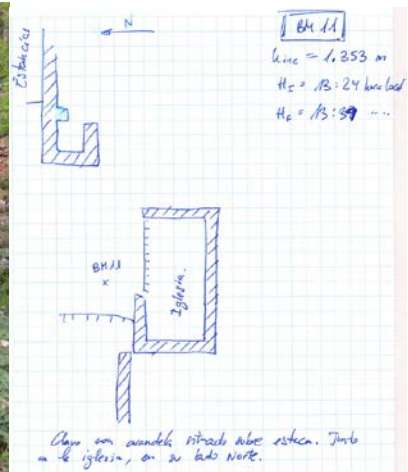 Estancias
N
BM 11
hinc = 1.353 m
HI = 13:24 hora local
Hf = 13:
BM 11
x
Iglesia.
Clavo con arandela situado sobre estaca. Junto
a la iglesia, en su lado Norte.